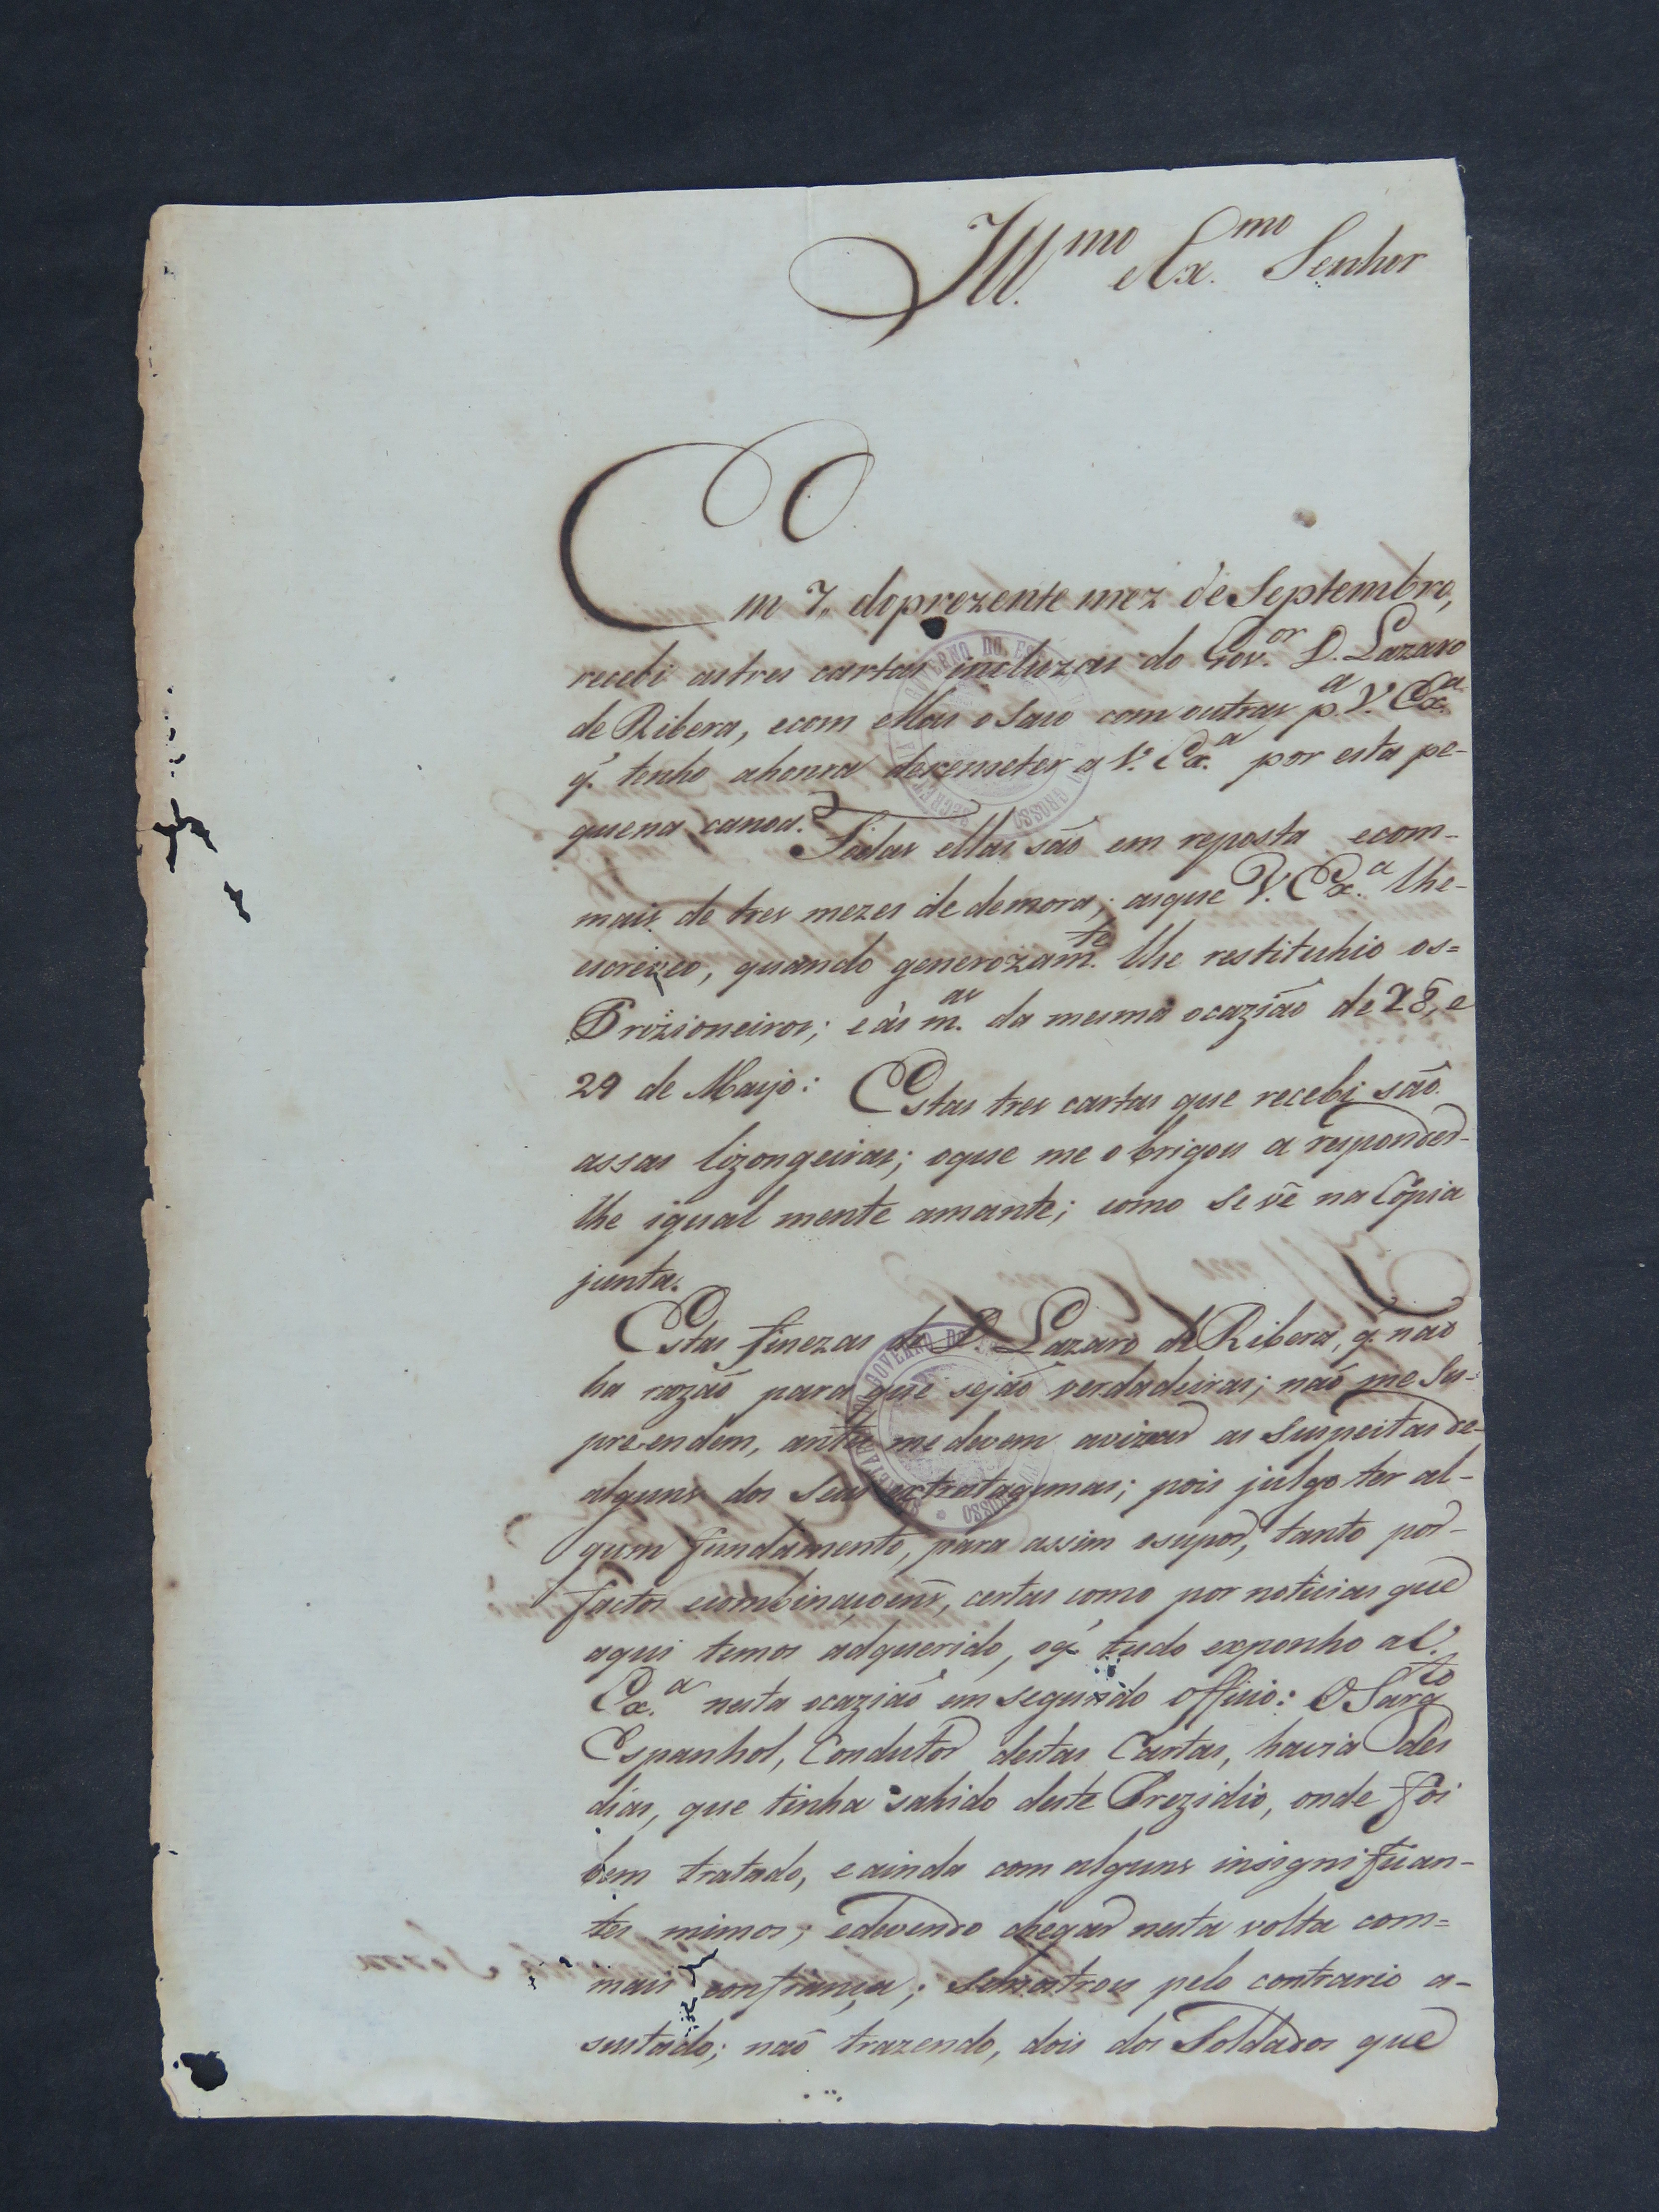 Ill.mo e Ex.mo Senhor
Em 7,, do prezente mez de Septembro,
recebi as tres cartas incluzas do Gov.or D. Lazaro
de Ribera, e com ellas o Saco com outras p.a V. Ex.a
q.' tenho a honra de remeter a V. Ex.a por esta pe-
quena canoa. Todas ellas são em reposta e com-
mais de tres mezes de demora; as que V. Ex.a lhe-
escreveo, quando generozam.te lhe restituhio os=
Prizioneiros; e ás m.as da mesma ocazião de 28, e
29 de Mayo: Estas tres cartas que recebi são
assas lizongeiras; o que me obrigou a responder-
lhe igual mente amante; como se vê na Cópia
junta.
Estas finezas de D. Lazaro de Ribera, q. não
ha razão para que sejão verdadeiras; não me Sur-
preendem, antes me devem avizar as Suspeitas de-
alguns dos Seus estratagemas; pois julgo ter al-
gum fundamento, para assim o supor, tanto por-
factos e combinaçoens, certas como por noticias que
aqui temos adquerido, o q.' tudo exponho a V.
Ex.a nesta ocazião em segundo officio: O Sarg.to
Espanhol, Condutor destas Cartas, havia des
dias, que tinha sahido deste Prezidio, onde foi
bem tratado, e ainda com alguns insignifican-
tes mimos; e devendo chegar nesta volta com=
mais confiança; Se mostrou pelo contrario a-
sustado; não trazendo, dois dos Soldados que
SECRETARIA DO GOVERNO DO ESTADO GROSSO
SECRETARIA DO GOVERNO DO GROSSO